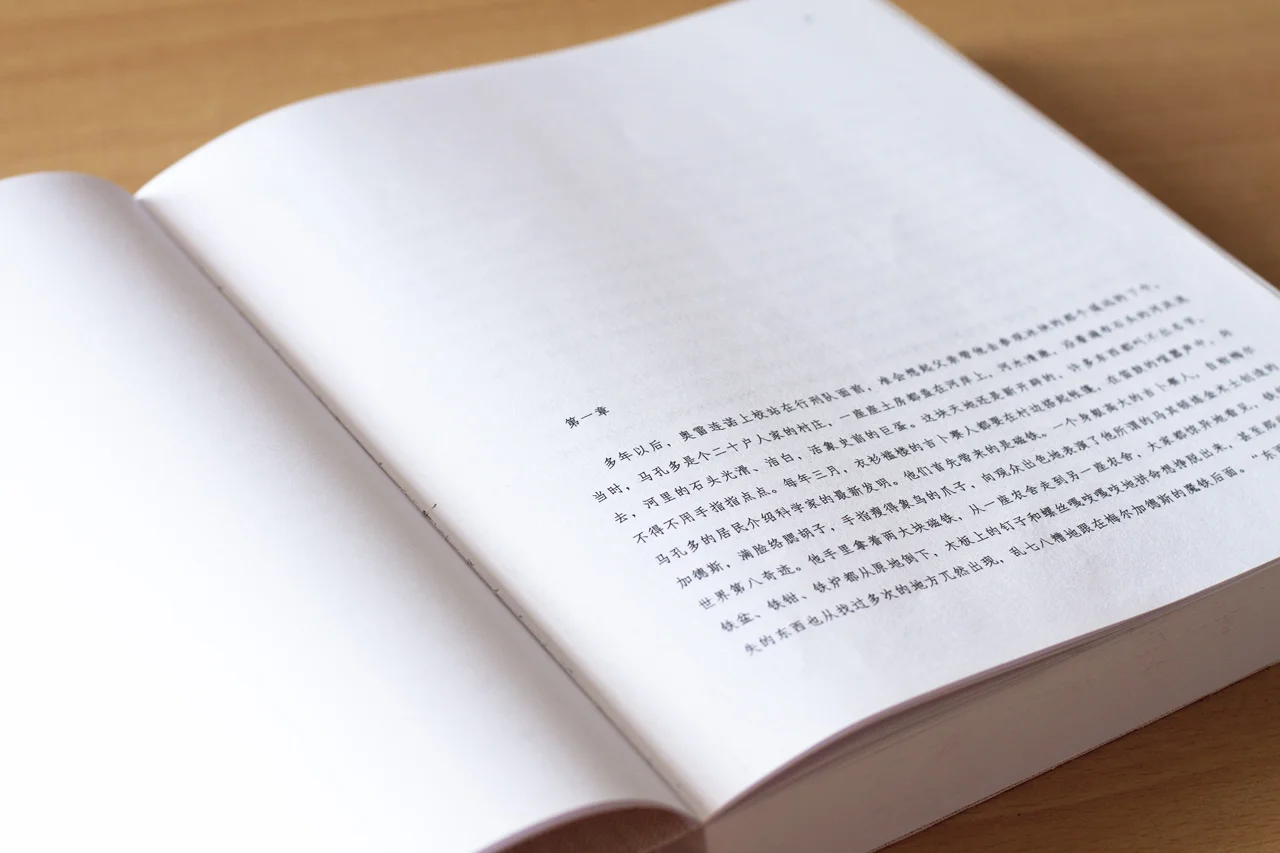 第一章
多年以后，奥雷连诺上校站在行刑队面前，准会想起父亲带他去参观冰块的那个遥远的下午。
当时，马孔多是个二十户人家的村庄，一座座土房都盖在河岸上，河水清澈，沿着遍布石头的河床流
去，河里的石头光滑、洁白，活象史前的巨蛋。这块天地还是新开辟的，许多东西都叫不出名字，
不得不用手指指点点。每年三月，衣衫褴褛的吉卜赛人都要在村边搭起帐篷，在笛鼓的喧嚣声中，向
马孔多的居民介绍科学家的最新发明。他们首先带来的是磁铁。一个身躯高大的吉卜赛人，自称梅尔
加德斯，满脸络腮胡子，手指瘦得象鸟的爪子，向观众出色地表演了他所谓的马其顿炼金术士创造的
世界第八奇迹。他手里拿着两大块磁铁，从一座农舍走到另一座农舍，大家都惊异地看见，铁
铁盆、铁钳、铁炉都从原地倒下，木板上的钉子和螺丝嘎吱嘎吱地拼命想挣脱出来，甚至那
失的东西也从找过多次的地方兀然出现，乱七八糟地跟在梅尔加德斯的魔铁后面。“东